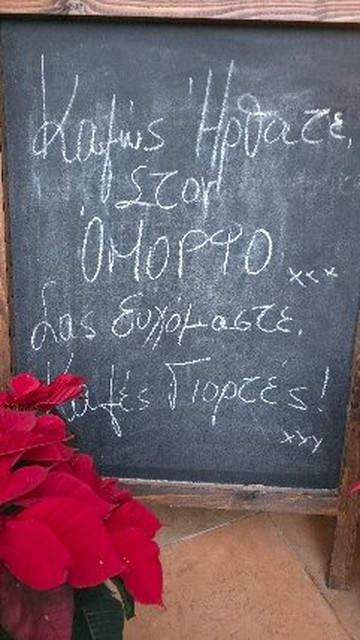 Καλώς Ήρθατε,
Στον
ΌΜΟΡΦΟ xxx
Σας Ευχόμαστε,
Καλές Γιορτές!
xxy